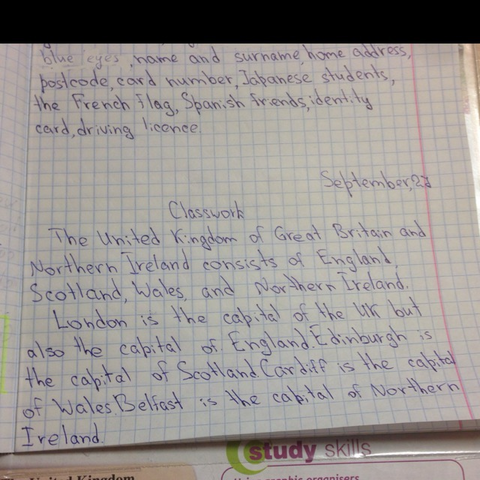 blue eyes, name and surname, home address,
postcode, card number, Japanese students,
the French Flag, Spanish friends, identity
card, driving licence.
September, 27
Classwork
The United Kingdom of Great Britain and
Northern Ireland consists of England,
Scotland, Wales, and Northern Ireland.
London is the capital of the UK but
also the capital of England Edinburgh is
the capital of Scotland Cardiff is the capital
of Wales Belfast is the capital of Northern
Ireland.
study skills
United Kingdom
organisers